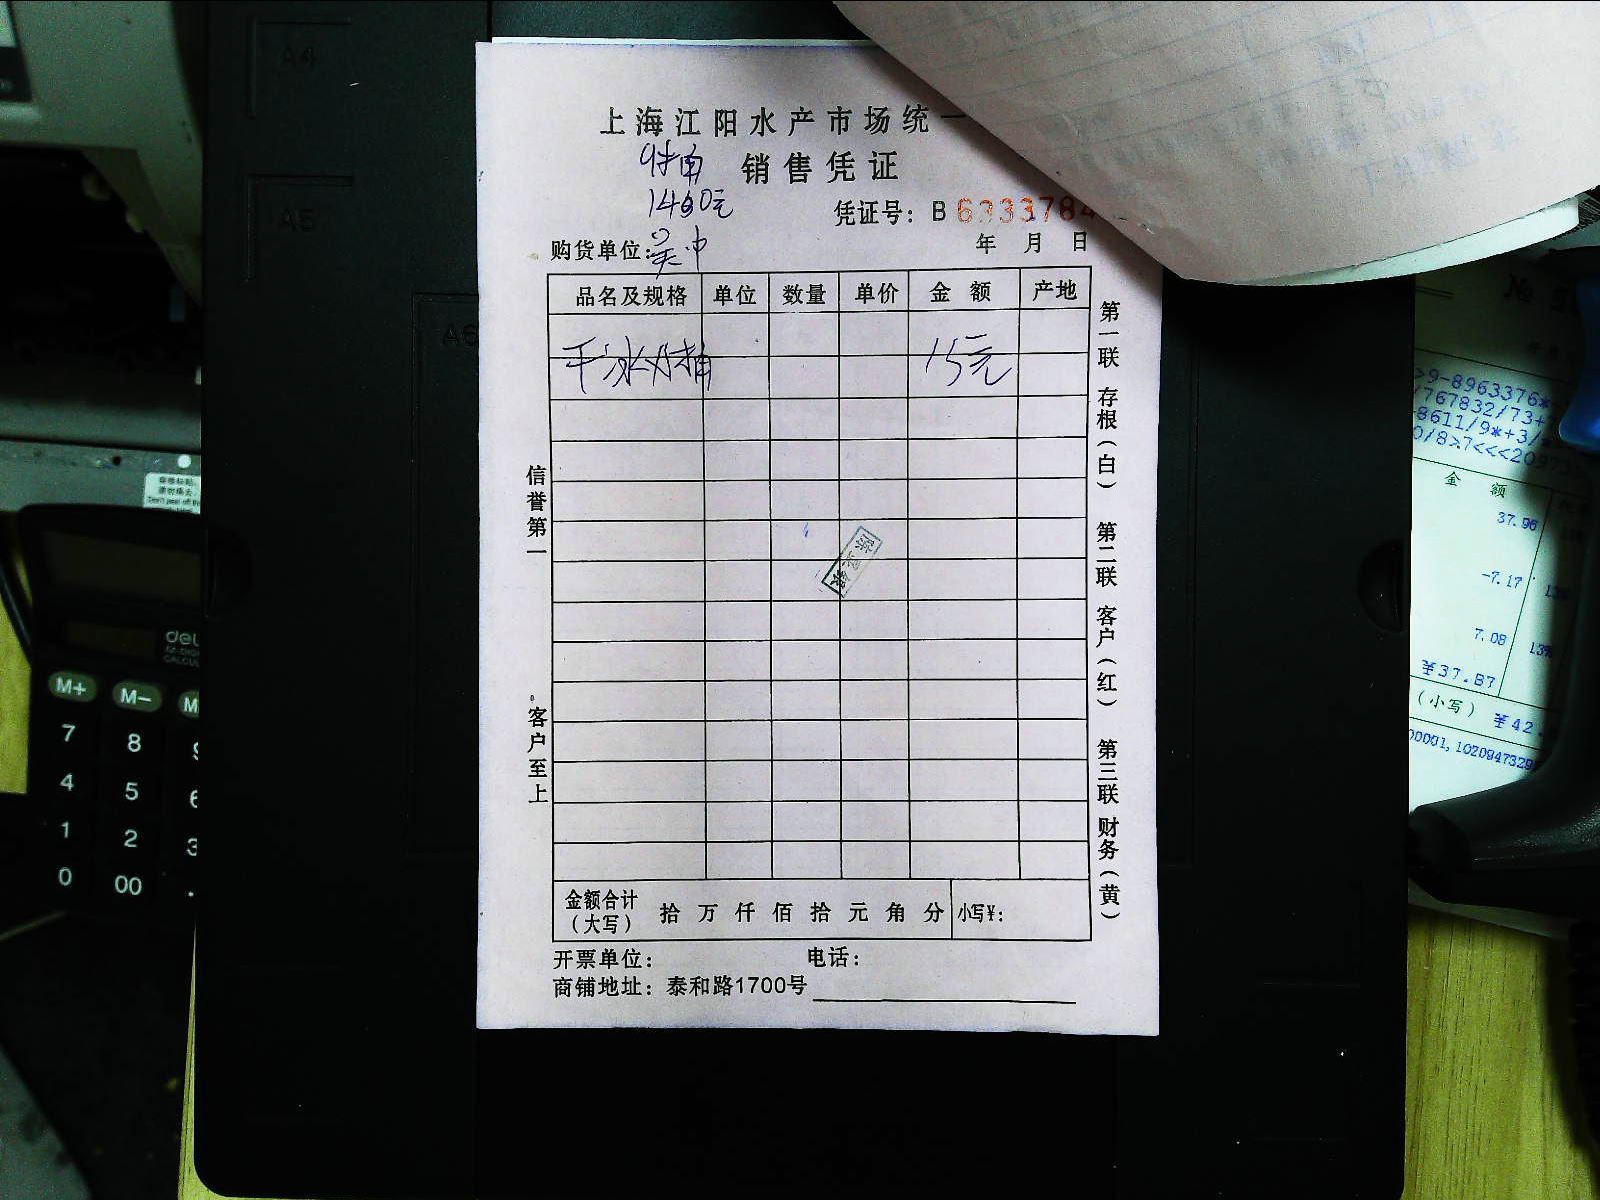 上海江阳水产市场统一
销售凭证
1460元
凭证号：B 6333784
购货单位：吴中
年 月 日
品名及规格 单位 数量 单价 金 额 产地
干冰 15元
信誉第一
客户至上
第一联 存根（白） 第二联 客户（红） 第三联 财务（黄）
金额合计（大写） 拾 万 仟 佰 拾 元 角 分 小写¥：
开票单位： 电话：
商铺地址：泰和路1700号
A4
A5
A6
deli
M+ M-
7 8
4 5 6
1 2 3
0 00 .
>9-8963376*
767832/73+
8611/9*+3/
0/8>7<<<20973
金 额
37.96
-7.17 13%
7.08 13%
¥37.87
（小写） ¥42.
00001,1020947329